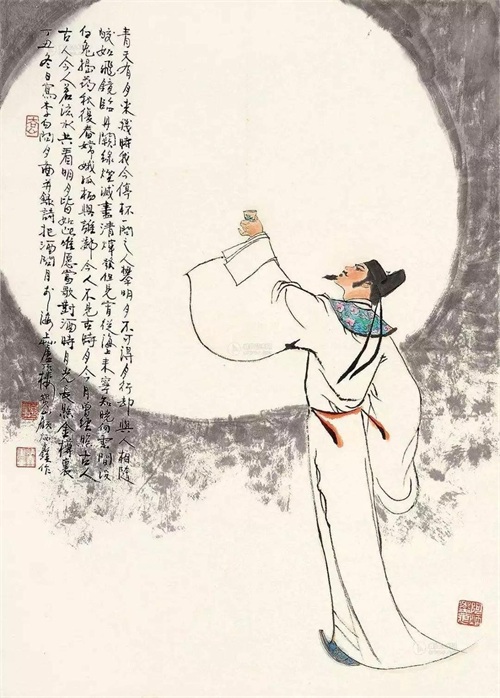 青天有月來幾時我今停杯一問之人攀明月不可得月行却與人相隨
皎如飛鏡臨丹闕綠煙滅盡清輝發但見宵從海上來寧知曉向雲間沒
白兔搗藥秋復春嫦娥孤栖與誰鄰今人不見古時月今月曾經照古人
古人今人若流水共看明月皆如此唯愿當歌對酒時月光長照金樽裏
丁丑冬日寫李白問月圖并錄詩把酒問月於海上樓顧炳鑫作